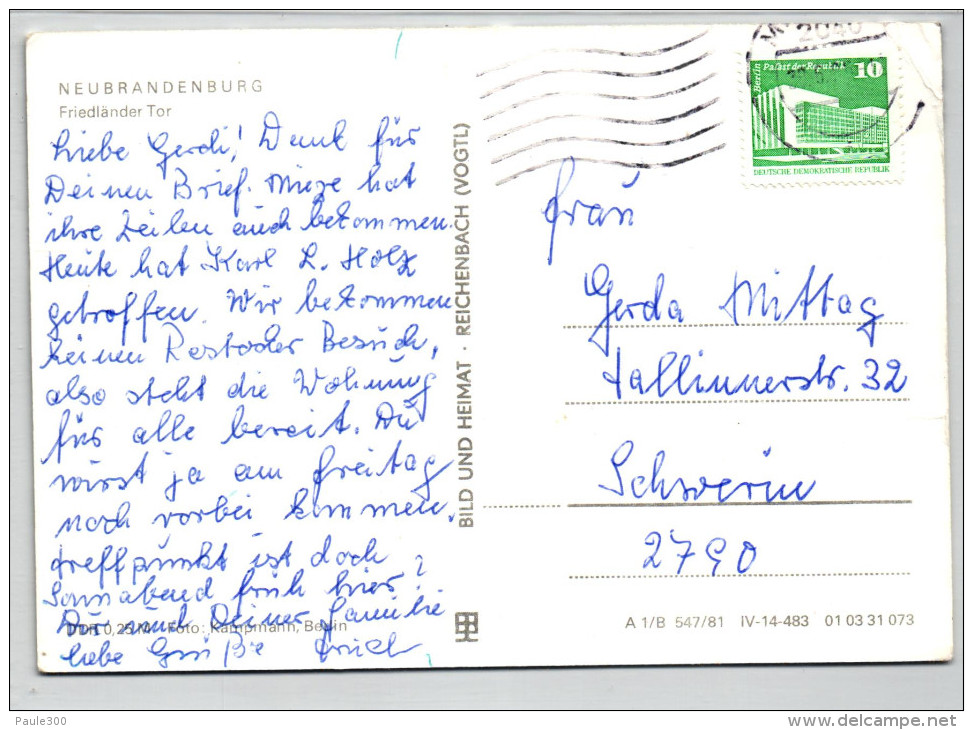 NEUBRANDENBURG
Friedländer Tor
Liebe Gerdi! Dank für
Deinen Brief. Mieze hat
ihre Zeilen auch bekommen.
Heute hat Karl L. Holz
getroffen. Wir bekommen
keinen Rostocker Besuch,
also steht die Wohnung
für alle bereit. Du
wirst ja am Freitag
noch vorbei kommen.
Treffpunkt ist doch
Sonnabend früh hier?
Dir und Deiner Familie
liebe Grüße
DDR 0,25 M Foto: Kampmann, Berlin
BILD UND HEIMAT · REICHENBACH (VOGTL)
2040
Berlin Palast der Republik 10
DEUTSCHE DEMOKRATISCHE REPUBLIK
Frau
Gerda Mittag
Tallinnerstr. 32
Schwerin
2790
A 1/B 547/81 IV-14-483 01 03 31 073
Paule300
www.delcampe.net